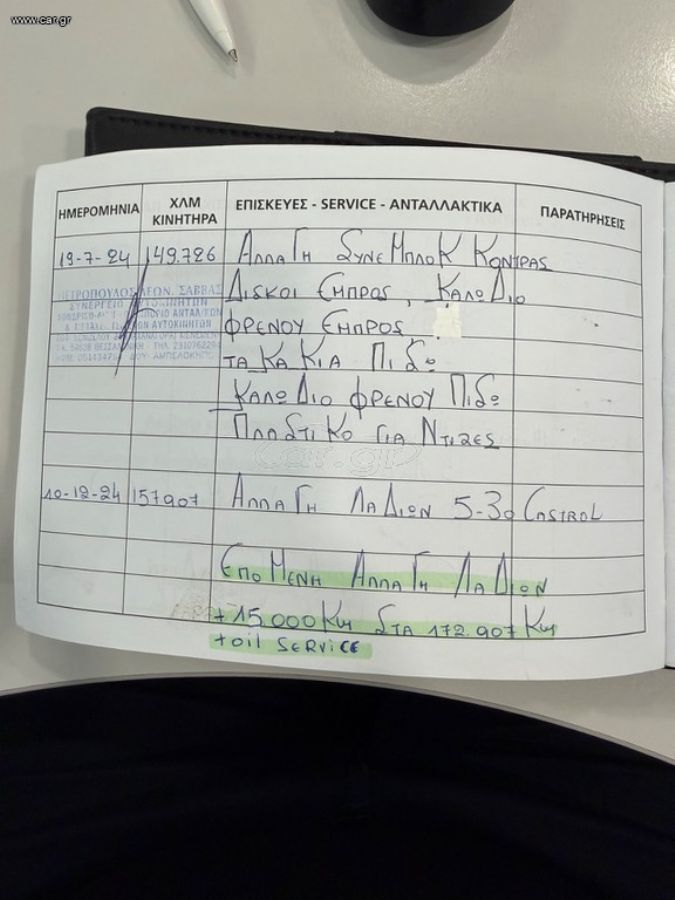 www.car.gr
ΗΜΕΡΟΜΗΝΙΑ ΧΛΜ ΚΙΝΗΤΗΡΑ ΕΠΙΣΚΕΥΕΣ - SERVICE - ΑΝΤΑΛΛΑΚΤΙΚΑ ΠΑΡΑΤΗΡΗΣΕΙΣ
19-7-24 149.726 ΑΛΛΑΓΗ ΣΥΝΕΜΠΛΟΚ ΚΟΝΤΡΑΣ
ΠΕΤΡΟΠΟΥΛΟΣ ΛΕΩΝ. ΣΑΒΒΑΣ
ΣΥΝΕΡΓΕΙΟ ΑΥΤΟΚΙΝΗΤΩΝ
ΔΙSΚΟΙ ΕΜΠΡΟΣ, ΚΑΛΩΔΙΟ
ΦΡΕΝΟΥ ΕΜΠΡΟΣ
ΤΑΚΑΚΙΑ ΠΙΣΩ
ΚΑΛΩΔΙΟ ΦΡΕΝΟΥ ΠΙΣΩ
ΠΛΑΣΤΙΚΟ ΓΙΑ ΝΤΙΖΕΣ
car.gr
10-12-24 157907 ΑΛΛΑΓΗ ΛΑΔΙΩΝ 5-30 CASTROL
ΕΠΟΜΕΝΗ ΑΛΛΑΓΗ ΛΑΔΙΩΝ
+15.000 Km ΣΤΑ 172.907 Km
+ oil SERViCE